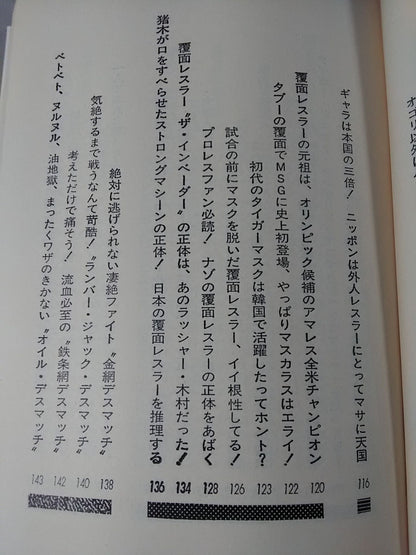 ギャラは本国の三倍！ ニッポンは外人レスラーにとってマサに天国 116
覆面レスラーの元祖は、オリンピック候補のアマレス全米チャンピオン 120
タブーの覆面でMSGに史上初登場、やっぱりマスカラスはエライ！ 122
初代のタイガーマスクは韓国で活躍したってホント？ 123
試合の前にマスクを脱いだ覆面レスラー、イイ根性してる！ 126
プロレスファン必読！ ナゾの覆面レスラーの正体をあばく 128
覆面レスラー〝ザ・インベーダー〟の正体は、あのラッシャー・木村だった！ 134
猪木が口をすべらせたストロングマシーンの正体！ 日本の覆面レスラーを推理する 136
絶対に逃げられない凄絶ファイト〝金網デスマッチ〟 138
気絶するまで戦うなんて苛酷！〝ランバー・ジャック・デスマッチ〟 140
考えただけで痛そう！ 流血必至の〝鉄条網デスマッチ〟 142
ベトベト、ヌルヌル、油地獄、まったくワザのきかない〝オイル・デスマッチ〟 143